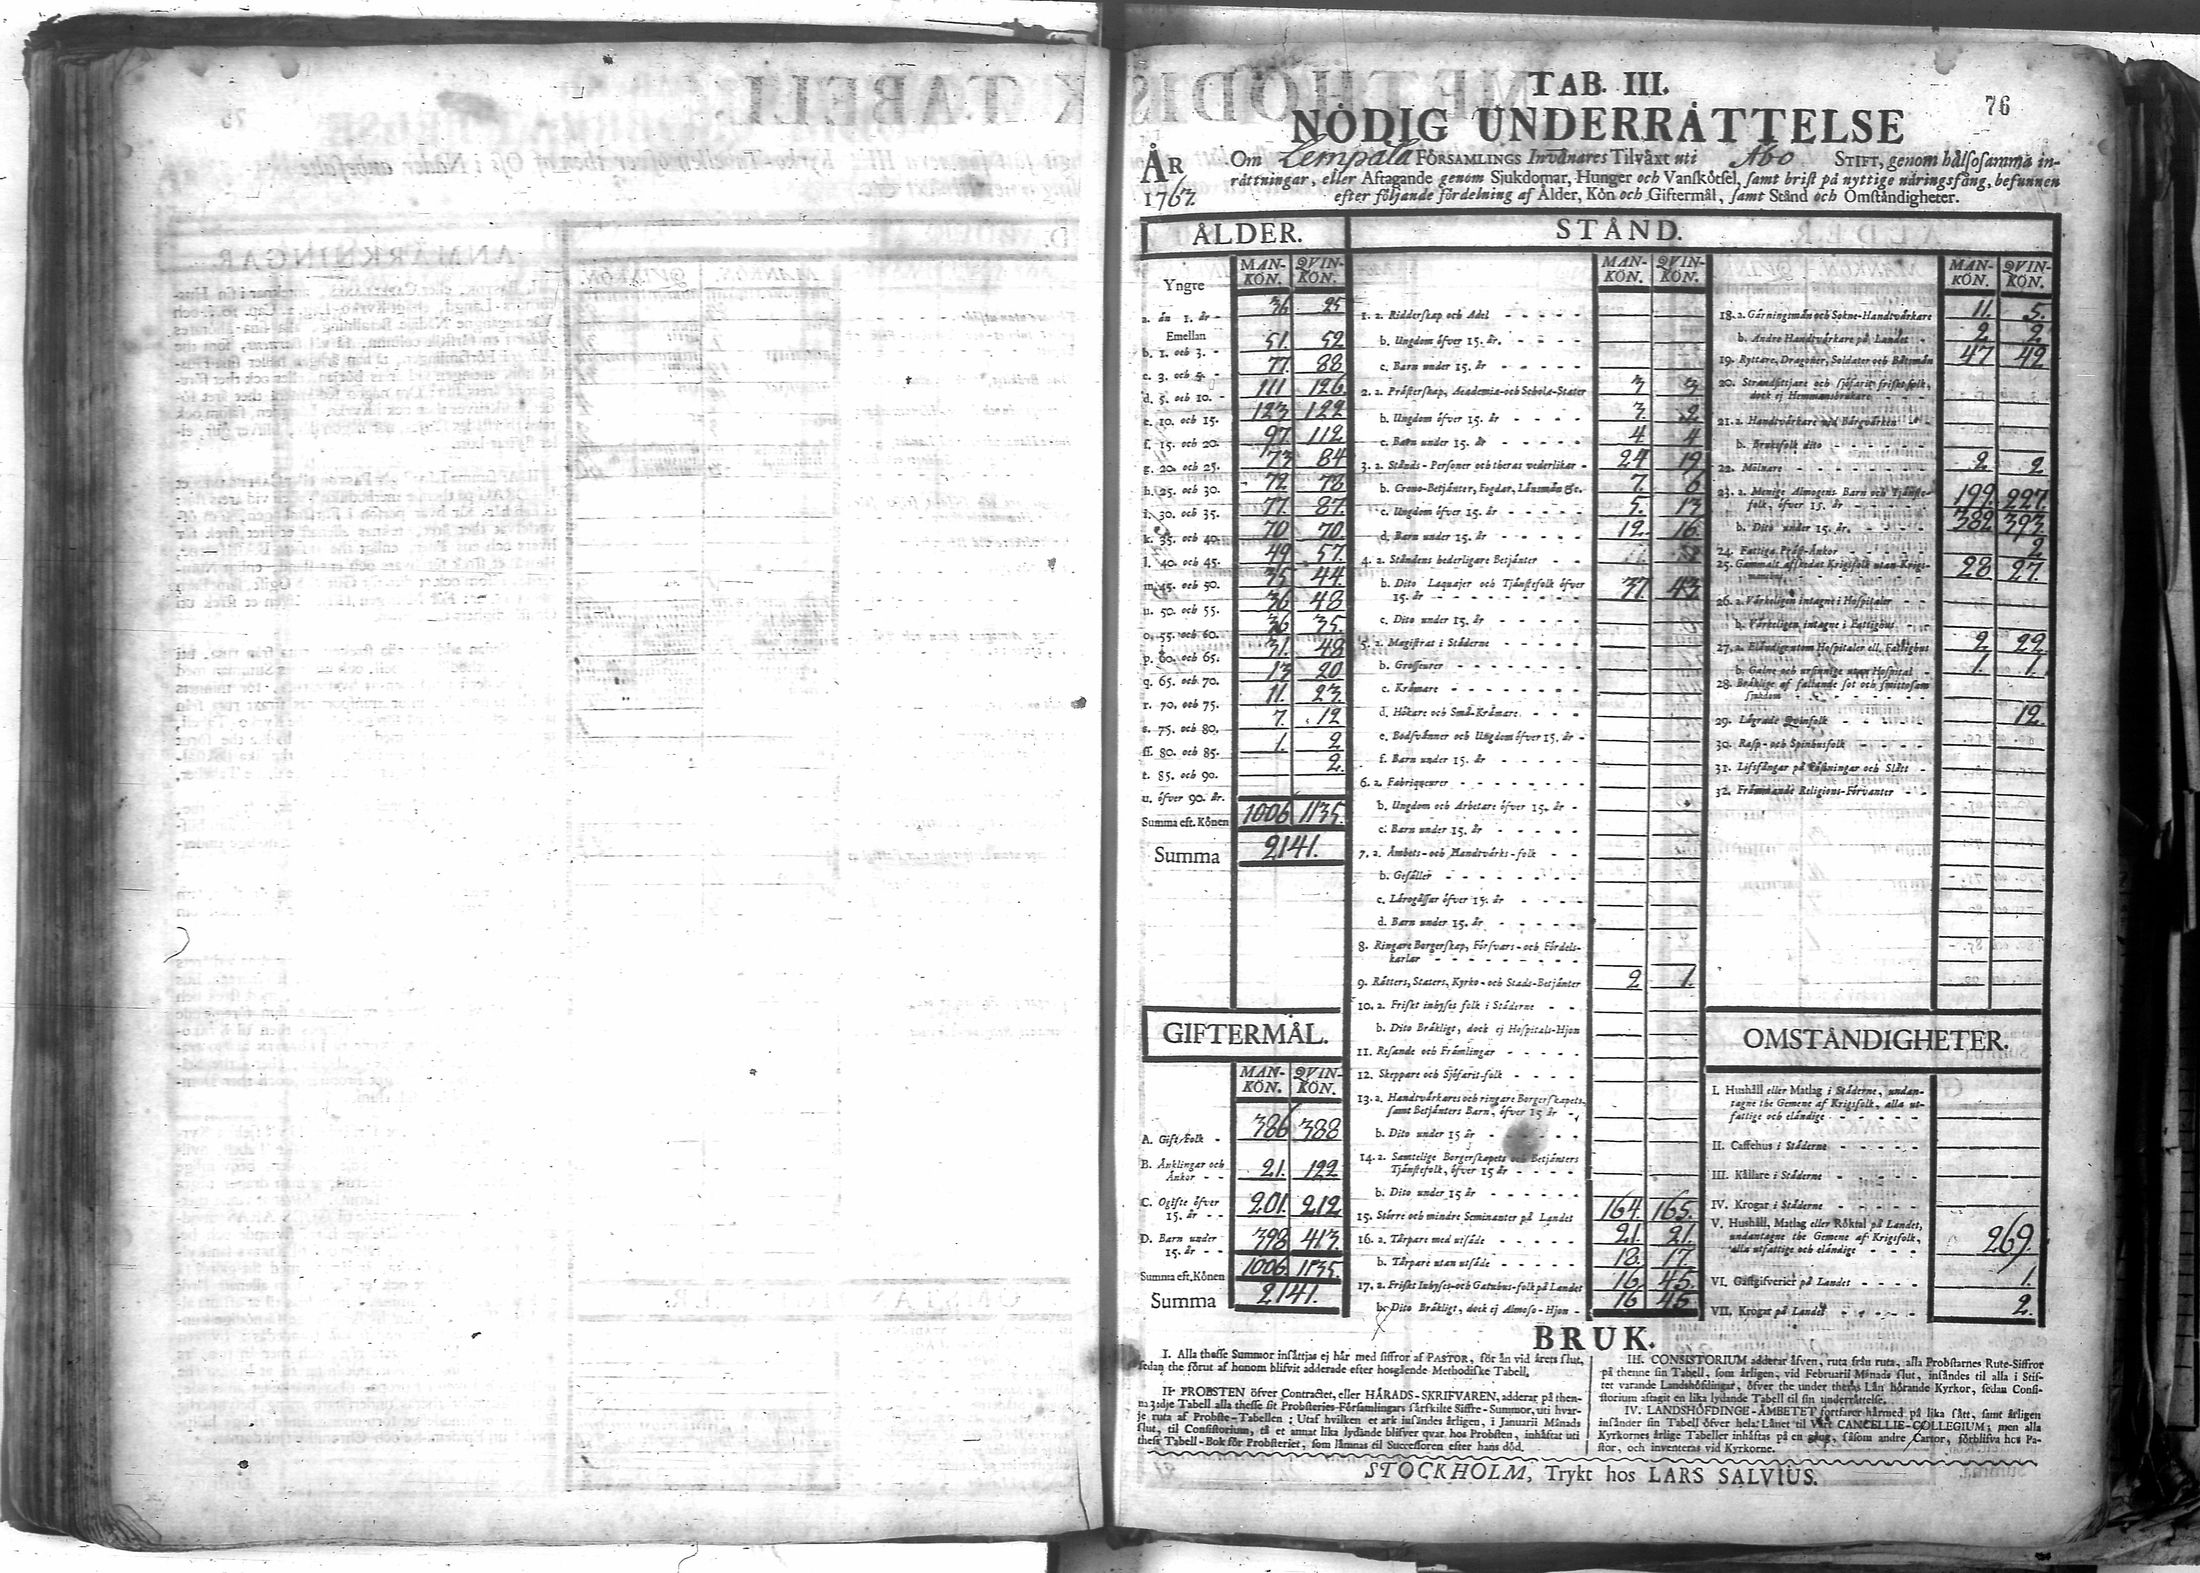 TAB. III.
76
NÖDIG UNDERRÄTTELSE
ÅR 1767
Om Lempälä FÖRSAMLINGS Invånares Tilväxt uti Åbo STIFT, genom hälsosamma in-
rättningar, eller Aftagande genom Sjukdomar, Hunger och Vanskötsel, samt brist på nyttige näringsfång, befunnen
efter följande fördelning af Ålder, Kön och Giftermål, samt Stånd och Omständigheter.
ÅLDER.
MAN-KÖN. QVIN-KÖN.
Yngre
a. än 1. år - 36 25
Emellan
b. 1. och 3. - 51. 52
c. 3. och 5. - 77. 88
d. 5. och 10. - 111 126
e. 10. och 15. 123 122
f. 15. och 20. 97. 112
g. 20. och 25. 73 84
h. 25. och 30. 72 78
i. 30. och 35. 77. 87.
k. 35. och 40. 70 70.
l. 40. och 45. 49 57.
m. 45. och 50. 35 44.
n. 50. och 55. 36 48
o. 55. och 60. 36 35.
p. 60. och 65. 31. 48
q. 65. och 70. 13 20
r. 70. och 75. 11. 23.
s. 75. och 80. 7. 12
ff. 80. och 85. 1. 2
t. 85. och 90. 2.
u. öfver 90. år.
Summa eft. Könen 1006 1135.
Summa 2141.
GIFTERMÅL.
MAN-KÖN. QVIN-KÖN.
A. Gift folk - 386 388
B. Änklingar och Änkor - - 21. 122
C. Ogifte öfver 15. år - - 201. 212
D. Barn under 15. år - - 398 413.
Summa eft. Könen 1006 1135.
Summa 2141.
STÅND.
MAN-KÖN. QVIN-KÖN.
1. a. Ridderskap och Adel
b. Ungdom öfver 15. år.
c. Barn under 15. år
2. a. Prästerskap, Academiæ-och Scholæ-Stater 3 3
b. Ungdom öfver 15. år 3. 2
c. Barn under 15. år 4 4
3. a. Stånds-Personer och theras vederlikar - 24 19
b. Crono-Betjänter, Fogdar, Länsmän &c. 7. 6
c. Ungdom öfver 15. år 5. 13
d. Barn under 15. år 12. 16.
4. a. Ståndens hederligare Betjänter
b. Dito Laquajer och Tjänstefolk öfver
15. år 37. 43
c. Dito under 15. år
5. a. Magistrat i Städerne
b. Grosseurer
c. Krämare
d. Hökare och Små-Krämare
e. Bodsvänner och Ungdom öfver 15. år -
f. Barn under 15. år
6. a. Fabriqueurer
b. Ungdom och Arbetare öfver 15. år -
c. Barn under 15. år
7. a. Ämbets-och Handtvärks-folk
b. Gesäller
c. Lärogåssar öfver 15. år
d. Barn under 15. år
8. Ringare Borgerskap, Försvars-och Fördels-
karlar
9. Rätters, Staters, Kyrko-och Stads-Betjänter 2 1.
10. a. Friskt inhyses folk i Städerne
b. Dito Bräkligt, dock ej Hospitals-Hjon
11. Resande och Främlingar
12. Skeppare och Sjöfarit-folk
13. a. Handtvärkares och ringare Borgerskapets,
samt Betjänters Barn, öfver 15 år
b. Dito under 15 år
14. a. Samtelige Borgerskapets och Betjänters
Tjänstefolk, öfver 15 år
b. Dito under 15 år
15. Större och mindre Seminanter på Landet 164. 165.
16. a. Torpare med utsäde 21. 21.
b. Torpare utan utsäde 18. 17.
17. a. Friskt Inhyses-och Gatuhus-folk på Landet 16 45.
b. Dito Bräkligt, dock ej Almoso-Hjon - 16 45.
MAN-KÖN. QVIN-KÖN.
18. a. Gärningsmän och Sokne-Handtvärkare 11. 5.
b. Andre Handtvärkare på Landet - 2 2
19. Ryttare, Dragoner, Soldater och Båtsmän 47 42
20. Strandsittjare och sjöfarit friskt folk,
dock ej Hemmansbrukare
21. a. Handtvärkare vid Bärgvärken
b. Bruksfolk dito
22. Mölnare 2 2
23. a. Menige Almogens Barn och Tjänste-
folk, öfver 15. år 199. 227.
b. Dito under 15. år. 382 393.
24. Fattiga Präst-Änkor 2
25. Gammalt afskedat Krigsfolk utan Krigs-
28 27.
26. a. Värkeligen intagne i Hospitaler
b. Värkeligen intagne i Fattighus
27. a. Eländige utom Hospitaler ell. Fattighus 2 22
b. Galne och ursinnige utan Hospital - 1. 1.
28. Bräklige af fallande sot och smittosam
sjukdom
29. Lägrade Qvinfolk 12.
30. Rasp-och Spinhusfolk
31. Lifsfångar på Fästningar och Slått -
32. Främmande Religions-Förvanter
OMSTÄNDIGHETER.
I. Hushåll eller Matlag i Städerne, undan-
tagne the Gemene af Krigsfolk, alla ut-
fattige och eländige
II. Caffehus i Städerne
III. Källare i Städerne
IV. Krogar i Städerne
V. Hushåll, Matlag eller Röktal på Landet,
undantagne the Gemene af Krigsfolk,
alla utfattige och eländige 269.
VI. Gästgifverier på Landet 1.
VII. Krogar på Landet 2.
BRUK.
I. Alla thesse Summor insättjas ej här med siffror af PASTOR, för än vid årets slut,
sedan the förut af honom blifvit adderade efter hosgående Methodiske Tabell.
II. PROBSTEN öfver Contractet, eller HÄRADS-SKRIFVAREN, adderar på then-
na 3:dje Tabell alla thesse sit Probsteries-Församlingars särskilte Siffre-Summor, uti hvar-
je ruta af Probste-Tabellen; Utaf hvilken et ark insändes årligen, i Januarii Månads
slut, til Consistorium, tå et annat lika lydande blifver qvar hos Probsten, inhäftat uti
thess Tabell-Bok för Probsteriet, som lämnas til Successoren efter hans död.
III. CONSISTORIUM adderar äfven, ruta från ruta, alla Probstarnes Rute-Siffror
på thenne sin Tabell, som årligen, vid Februarii Månads slut, insändes til alla i Stif-
tet varande Landshöfdingar, öfver the under theras Län hörande Kyrkor, sedan Consi-
storium aftagit en lika lydande Tabell til sin underrättelse.
IV. LANDSHÖFDINGE-ÄMBETET fortfarer härmed på lika sätt, samt årligen
insänder sin Tabell öfver hela Länet til Vårt CANCELLIE-COLLEGIUM; men alla
Kyrkornes årlige Tabeller inhäftas på en gång, såsom andre Cartor, förblifva hos Pa-
stor, och inventeras vid Kyrkorne.
STOCKHOLM, Trykt hos LARS SALVIUS.